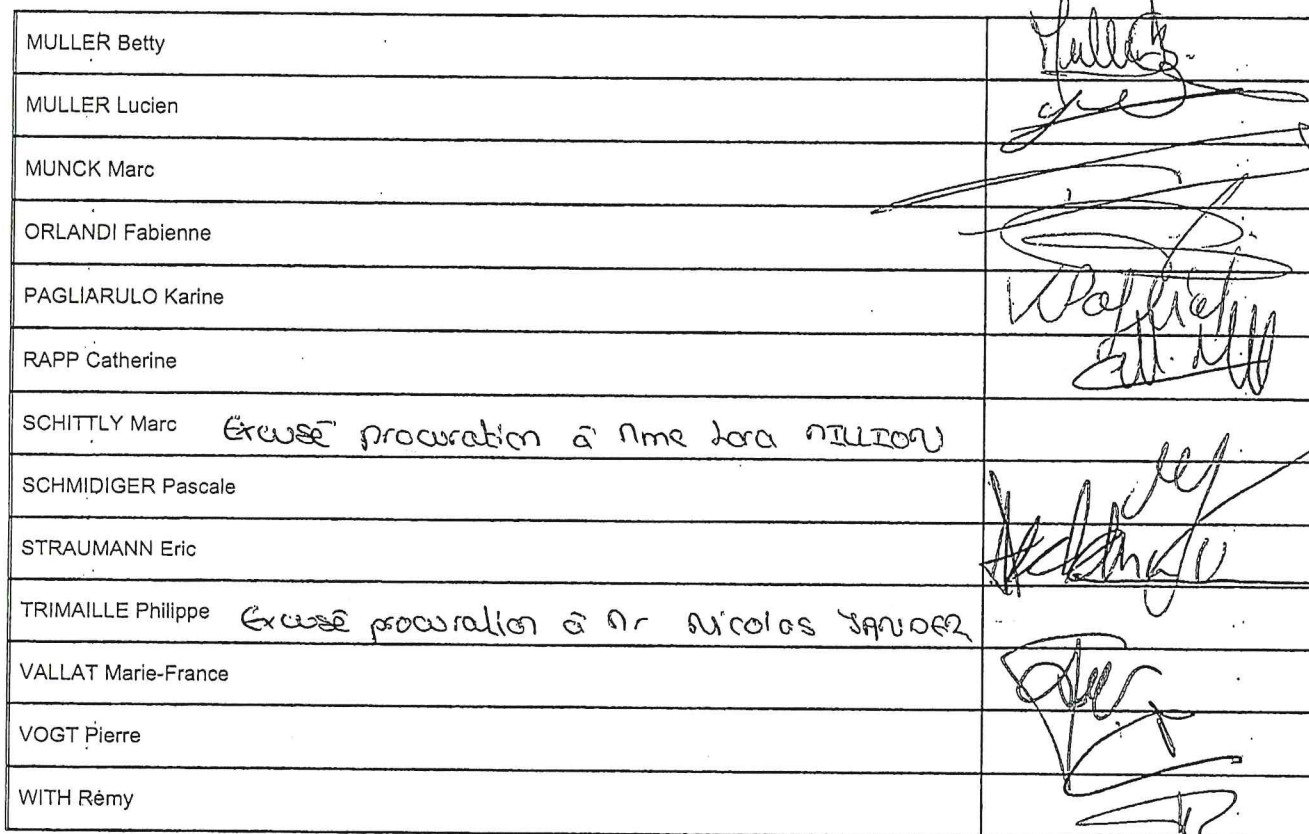 MULLER Betty
MULLER Lucien
MUNCK Marc
ORLANDI Fabienne
PAGLIARULO Karine
RAPP Catherine
SCHITTLY Marc Excusé procuration à Mme Lara MILLION
SCHMIDIGER Pascale
STRAUMANN Eric
TRIMAILLE Philippe Excusé procuration à Mr Nicolas JANDER
VALLAT Marie-France
VOGT Pierre
WITH Rémy